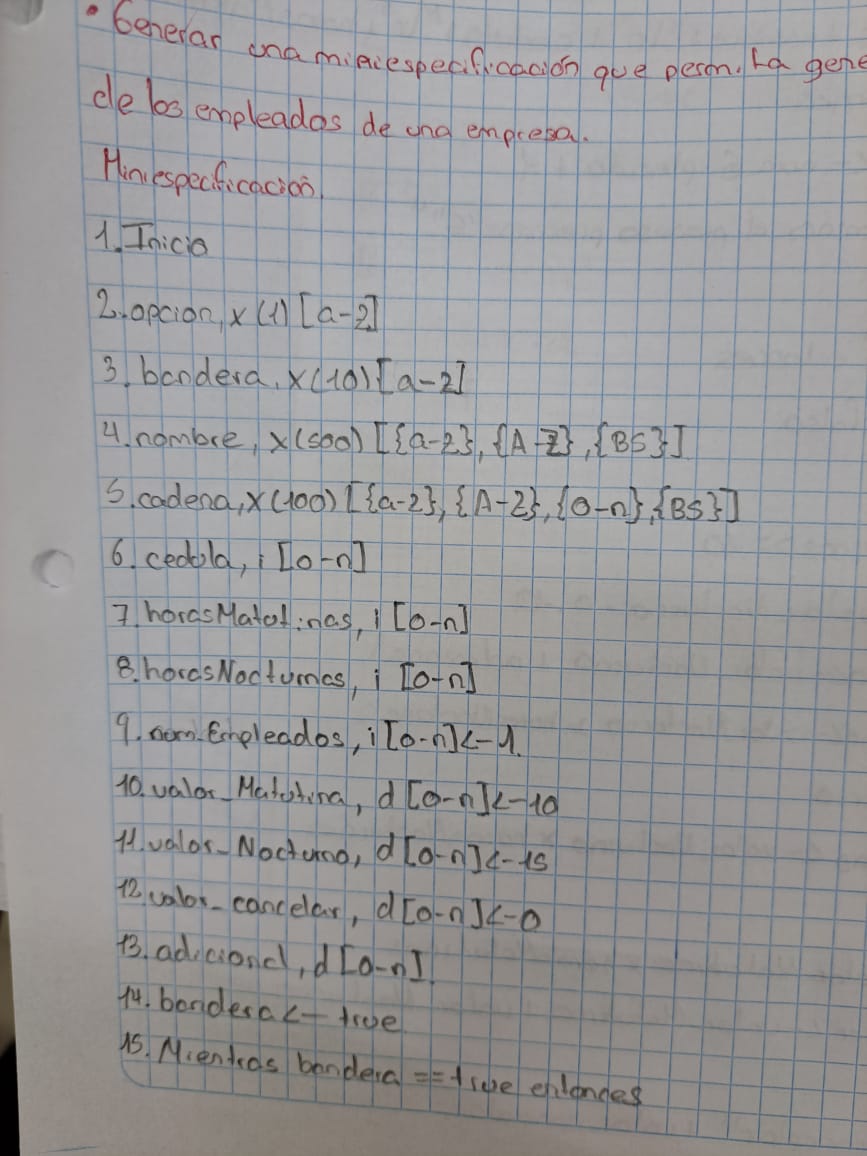 • Generar una miniespecificación que permita gene
de los empleados de una empresa.
Miniespecificación.
1. Inicio
2. opcion, x(1) [a-z]
3. bandera, x(10) [a-z]
4. nombre, x(500) [{a-z}, {A-Z}, {BS}]
5. cadena, x(100) [{a-z}, {A-Z}, {0-n}, {BS}]
6. cedula, i [0-n]
7. horasMatutinas, i [0-n]
8. horasNocturnas, i [0-n]
9. num_Empleados, i [0-n] <- 1.
10. valor_Matutina, d [0-n] <- 10
11. valor_Nocturno, d [0-n] <- 15
12. valor_cancelar, d [0-n] <- 0
13. adicional, d [0-n].
14. bandera <- true
15. Mientras bandera == true entonces